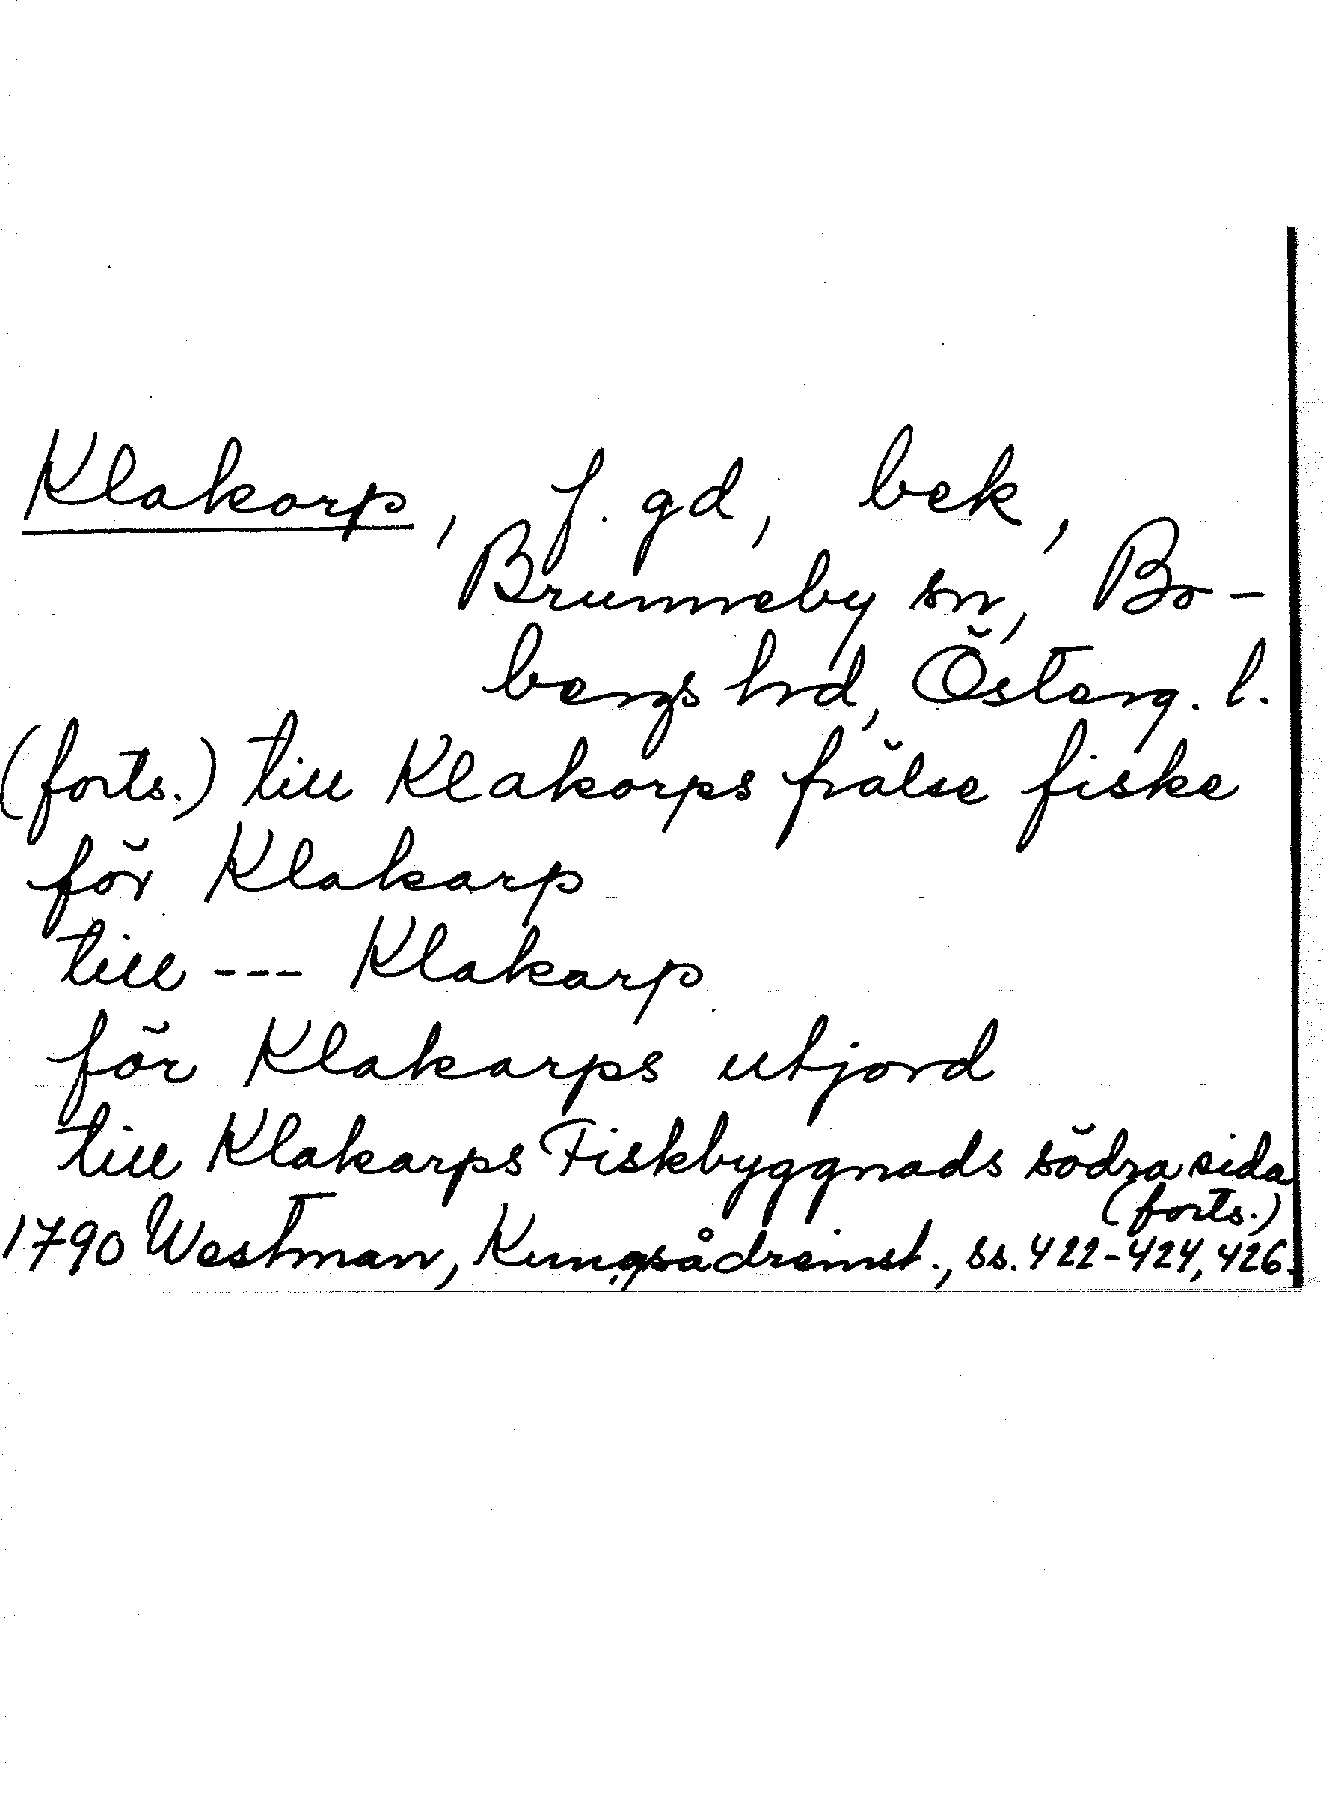 Klakorp, f. gd, bek,
Brunneby sn, Bo-
bergs hrd, Österg. l.
(forts.) till Klakorps frälse fiske
för Klakarp
till --- Klakarp
för Klakarps utjord
till Klakarps Fiskbyggnads södra sida
(forts.)
1790 Westman, Kungsådreinst., ss. 422-424, 426.